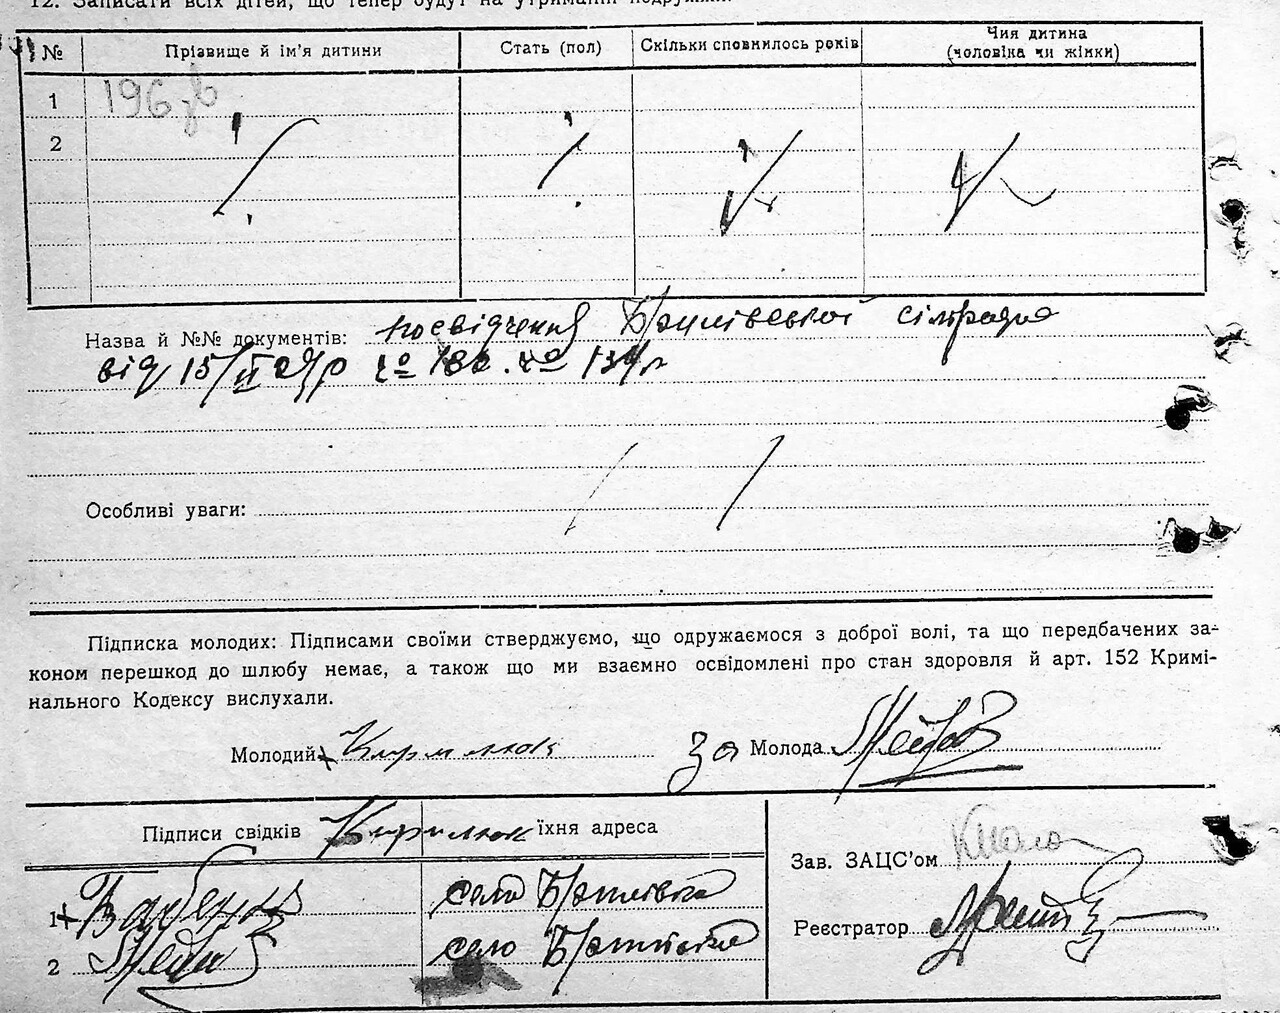 12. Записати всіх дітей, що тепер будут на утриманні подружжя.
№ Прізвище й ім'я дитини Стать (пол) Скільки сповнилось років Чия дитина
(чоловіка чи жінки)
1
2
Назва й №№ документів: посвідчення сільради
від 15/II 29р
Особливі уваги:
Підписка молодих: Підписами своїми стверджуємо, що одружаємося з доброї волі, та що передбачених за-
коном перешкод до шлюбу немає, а також що ми взаємно освідомлені про стан здоровля й арт. 152 Кримі-
нального Кодексу вислухали.
Молодий Кирилюк за Молода
Підписи свідків Кирилюк їхня адреса
Зав. ЗАЦС'ом
1 село
Реєстратор
2 село